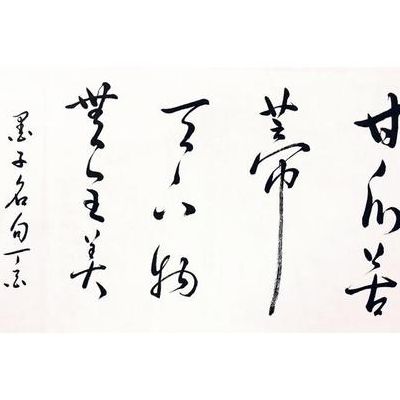 甘瓜苦
蒂
天下物
無全美
墨子名句丁